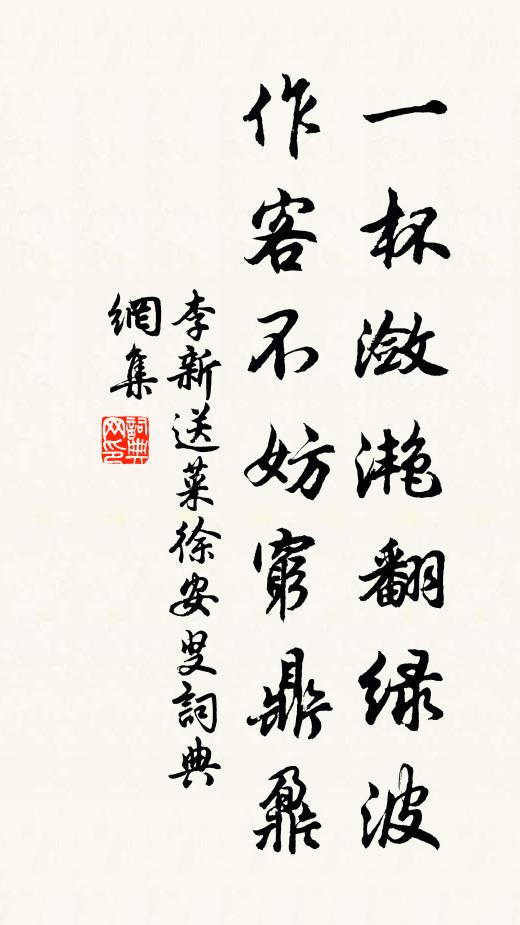 一杯瀲灩翻绿波
作客不妨窮鼎鼐
李新送菜徐安叟詞典
網集
詞典
网印